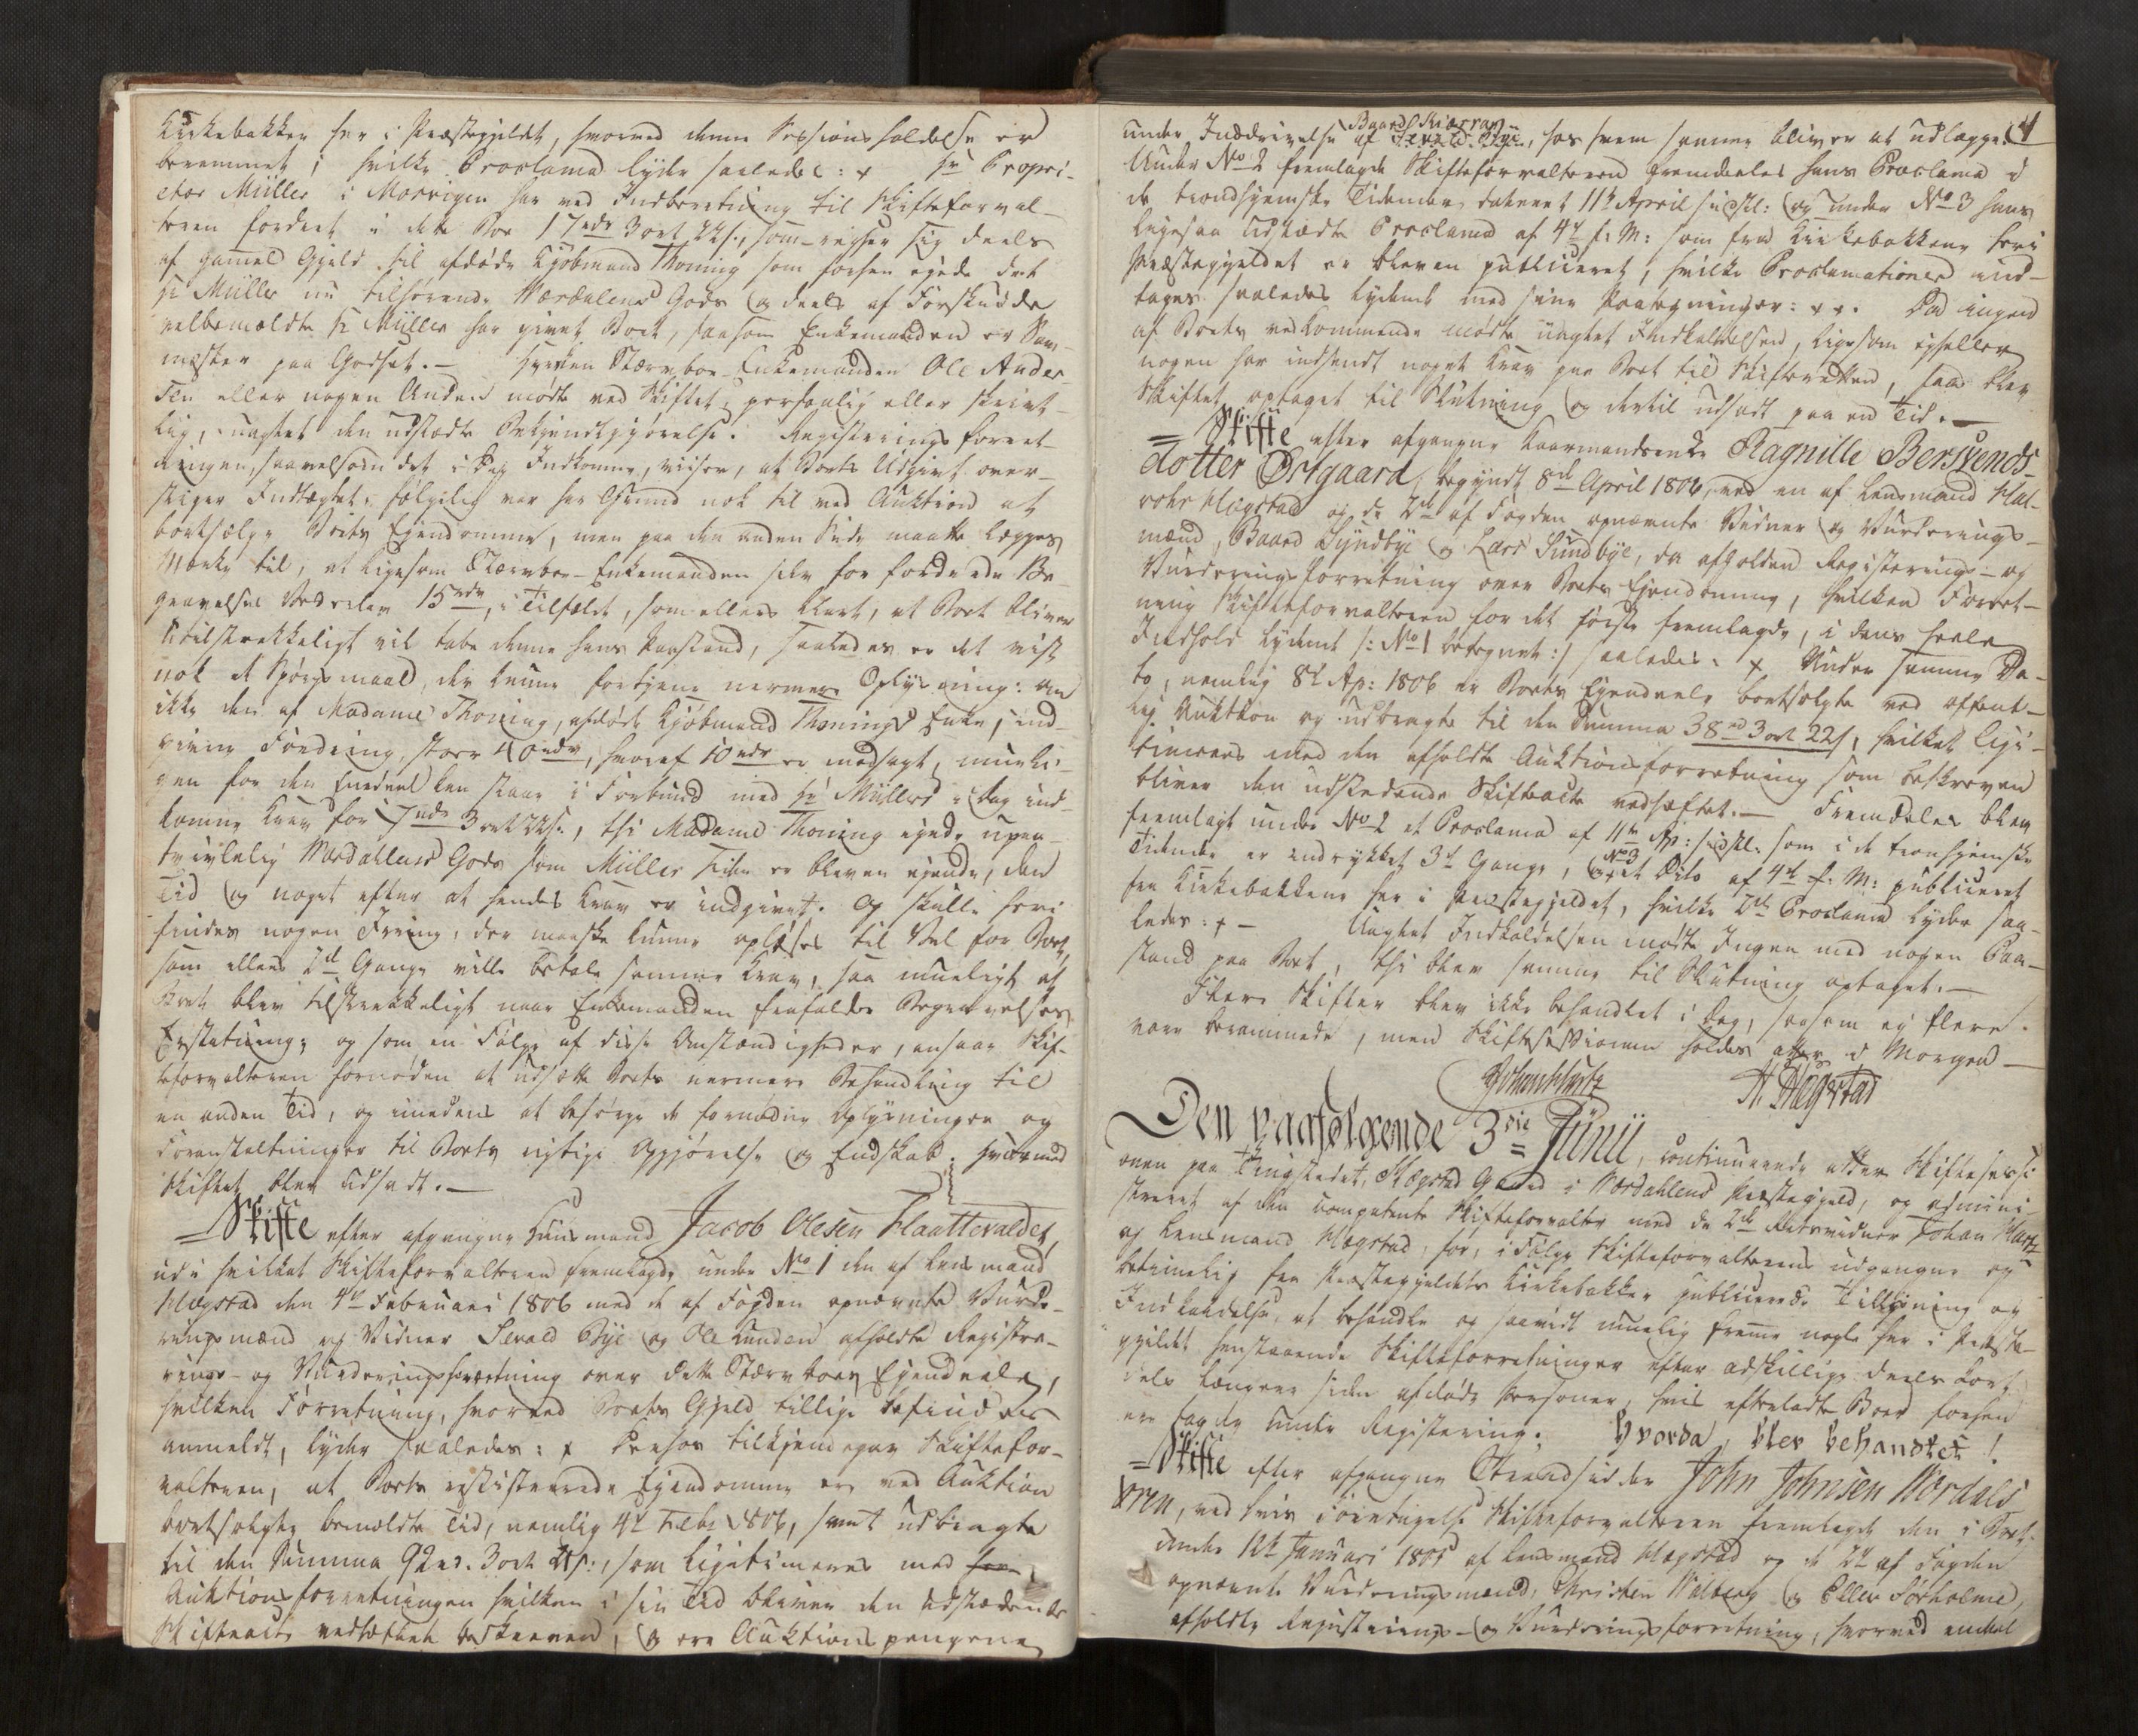 Kirkebakken her i Præstegjeldet, hvorved denne Sessions holdelse er
berammet; hvilke Proclama lyder saaledes: x Hr Propri-
etær Müller i Morvigen har ved Indberetning til Skifteforval-
teren fordret i dette Boe 17 rdr 3 ort 22 s., som reyser sig deels
af gammel Gjeld til afdøde Kjöbmand Thoning som forhen ejede det
Hr Müller nu tilhørende Værdalens Gods og deels af Forskudde
velbemældte Hr Müller har givet Boet, saasom Enkemanden er
mester paa Godset. — Hverken Stærvboe-Enkemanden Ole Ander-
sen eller nogen Anden mødte ved Skiftet, personlig eller skrivt-
lig, uagtet den udstædte Bekjendtgjørelse. Registerings forret-
ningen, saavelsom det i Dag Indkomne, viiser, at Boets Udgivt over-
stiger Indtægten, følgelig var her Grund nok til ved Auktion at
bortsælge Boets Ejendomme, men paa den anden Side maatte lægges
Mærke til, at ligesom Stærvboe-Enkemanden selv har fordrede Be-
gravelses 15 rdr, i Tilfælde, som ellers klart, at Boet bliver
utilstrækkeligt vil tabe denne hans Paastand, saaledes er det vist
nok et Spørgsmaal, der kunne fortjene nermere Oplysning: om
ikke den af Madame Thoning, afdøde Kjöbmand Thonings Enke, ind-
givne Fordring, stoer 40 rdr, hvoraf 10 rdr er modsagt, mueli-
gen for den Eendeel kan staae i Forbund med Hr Müllers i Dag ind-
komne Krav for 17 rdr 3 ort 22 s., thi Madame Thoning ejede upaa-
tvivlelig Værdahlens Gods som Müller siden er bleven ejende, den
Tid og noget efter at hendes Krav er indgivet. Og skulle heri
findes nogen Irring, der maaske kunne opløses til Vel for Boet,
som ellers 2de Gange ville betale samme Krav, saa mueligt at
Boet blev tilstrækkeligt naar Enkemanden frafalder Begravelses
Erstatning, og som en Følge af disse Omstændigheder, ansaae Skif-
teforvalteren fornøden at udsætte Boets nermere Behandling til
en anden Tid, og imedens at besørge de fornødne Oplysninger og
Foranstaltninger til Boets rigtige Opgjørelse og Endskab. Hvormed
Skiftet blev Udsadt. —
= Skifte efter afgangne Huusmand Jacob Olesen Flaattevaldet,
udi hvilket Skifteforvalteren fremlagde under No 1 den af Lensmand
Hægstad den 4de Februari 1806 med de af Fogden opnævnte Vurde-
ringsmænd og Vidner Sevald Bye og Ole Lunden afholdte Registre-
rings- og Vurderingsforretning over dette Stærvboes Ejendeele,
hvilken Forretning, hvorved Boets Gjeld tillige befindes
anmeldt, lyder saaledes: x Derhos tilkjendegav Skiftefor-
valteren, at Boets registrerede Ejendomme er ved Auktion
bortsolgte bemældte Tid, nemlig 4de Febr 1806, samt udbragte
til den Summa 92 rd. 3 ort s:, som legitimeres med
Auktions forretningen hvilken i sin Tid bliver den udstædende
Skifteact vedhæftet beskreven, og ere Auktions pengene
4
under Inddrivelse af Baard Kiærran, hos hvem samme bliver at udlægge.
Under No 2 fremlagde Skifteforvalteren fremdeeles hans Proclama i
de trondhjemske Tidender dateret 11te April sidstl: og under No 3 hans
ligesaa Udstædte Proclama af 4de f: M: som fra Kirkebakkene heri
Præstegjeldet er bleven publiceret, hvilke Proclamationer ind-
tages saaledes lydende med sine Paategninger: x x. Da ingen
af Boets vedkommende mødte uagtet Indkaldelsen, ligesom ejheller
nogen har indsendt noget Krav paa Boet til Skifteretten, saa blev
Skiftet optaget til Slutning og dertil udsadt paa en Tid. —
= Skifte efter afgangne Kaarmandsenke Ragnille Bersvends-
dotter Østgaard, begyndt 8de April 1806, ved en af Lensmand Hal-
vohr Hægstad og de 2de af Fogden opnævnte Vidner og Vurderings-
mænd, Baard Syndbye og Lars Sundbye, da afholden Registerings- og
Vurderingsforretning over Boets Ejendomme, hvilken Forret-
ning Skifteforvalteren for det første fremlagde, i dens heele
Indhold lydende /: No 1 betegnet :/ saaledes: x Under samme Da-
to, nemlig 8de Ap: 1806 er Boets Ejendeele bortsolgte ved offent-
lig Auktion og udbragte til den Summa 38 rd 3 ort 22 s, hvilket legi-
timeres med den afholdte Auktionsforretning som beskreven
bliver den udstedende Skifteacte vedhæftet. — Fremdeles blev
fremlagt under No 2 et Proclama af 11te Ap: sidstl: som i de tronhjemske
Tidender er indrykket 3de Gange, og No 3 et Dito af 4de f: M: publiceret
fra Kirkebakkene her i Præstegjeldet, hvilke 2de Proclama lyder saa-
ledes: x — Uagtet Indkaldelsen mødte Ingen med nogen Paa-
stand paa Boet, thi blev samme til Slutning optaget. —
Flere Skifter blev ikke behandlet i Dag, saasom ej flere
vare berammede, men Skiftesessionen holdes atter i Morgen —
Johan Hartz H. Hægstad
Den paafølgende 3die Junii, continuerede atter Skiftesessi-
onen paa Tingstedet, Hægstad Gaard i Værdahlens Præstegjeld, og admini-
streret af den competente Skifteforvalter med de 2de Retsvidner Johan Hartz
og Lensmand Hægstad, for, i Følge Skifteforvalterens udgangne og
betimelig fra Præstegjeldets Kirkebakker publicerede Tillysning og
Indkaldelse, at behandle og saavidt muelig fremme nogle her i Præste-
gjeldet henstaaende Skifteforretninger efter adskillige deels kort
dels længere siden afdøde Personer, hvis efterladte Boer forhen
ere tagne under Registering. Hvorda, blev behandlet!
= Skifte efter afgangne Strandsidder John Johnsen Værdals-
øren, ved hvis Foretagelse Skifteforvalteren fremlagde den i Boet
under 12te Januari af Lensmand Hægstad og de 2de af Fogden
opnævnte Vurderingsmænd, Christen Walberg og Eller Sørholmd,
afholdte Registerings- og Vurderingsforretning, hvorved